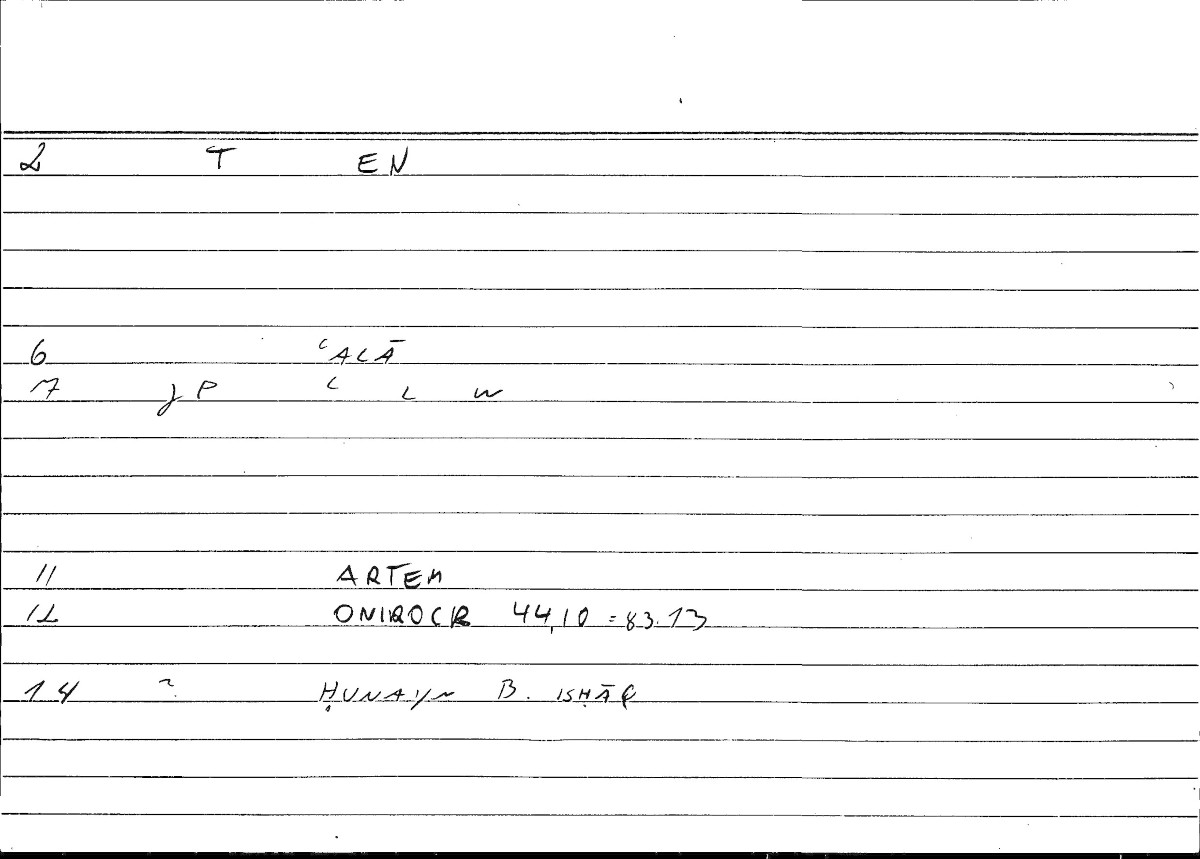 2 T EN
6 ʿALĀ
7 J P ʿ L W
11 ARTEM
12 ONIROCR 44,10 = 83.13
14 ~ ḤUNAYN B. ISḤĀQ